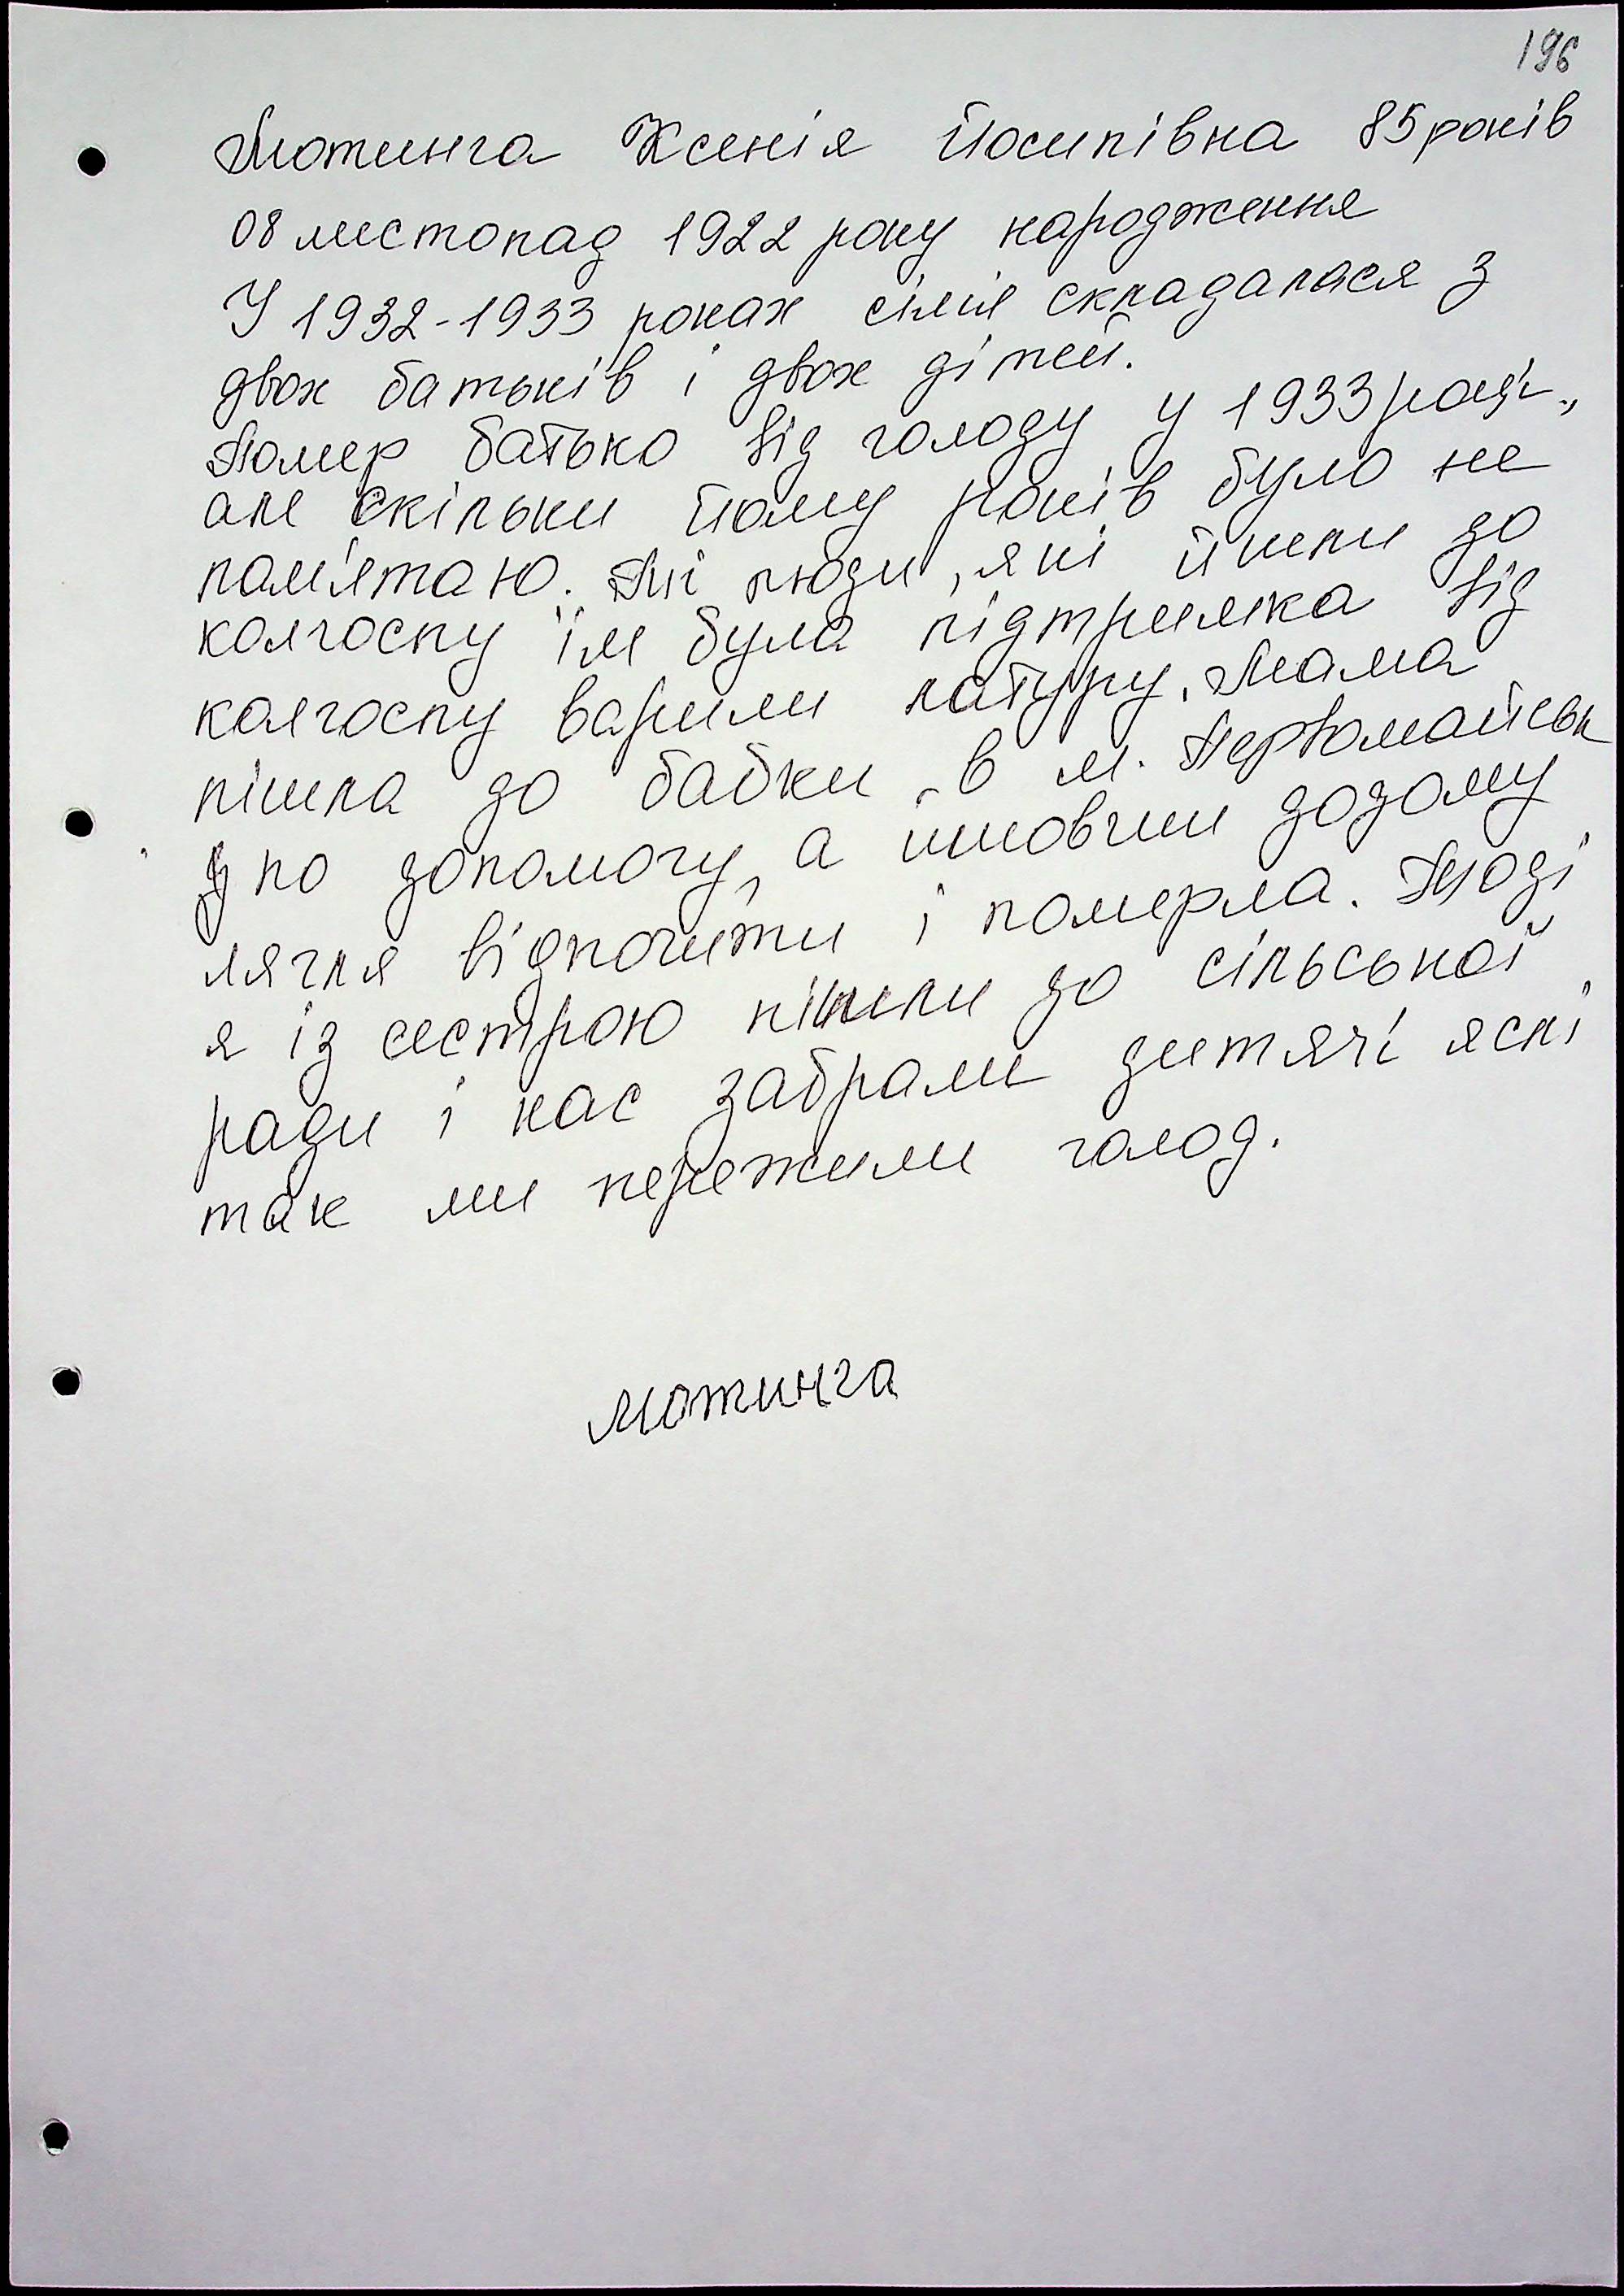 196
Мотинга Ксенія Йосипівна 85 років
08 листопад 1922 року народження
У 1932-1933 роках сімія складалася з
двох батьків і двох дітей.
Помер батько від голоду у 1933 році,
але скільки йому років було не
пам'ятаю. Ті люди, які йшли до
колгоспу їм була підтримка від
колгоспу варили затуру. Мама
пішла до бабки в м. Первомайськ
по допомогу, а ишовчи додому
лягля відпочити і померла. Тоді
я із сестрою пішли до сільської
ради і нас забрали дитячі яслі
так ми пережили голод.
Мотинга